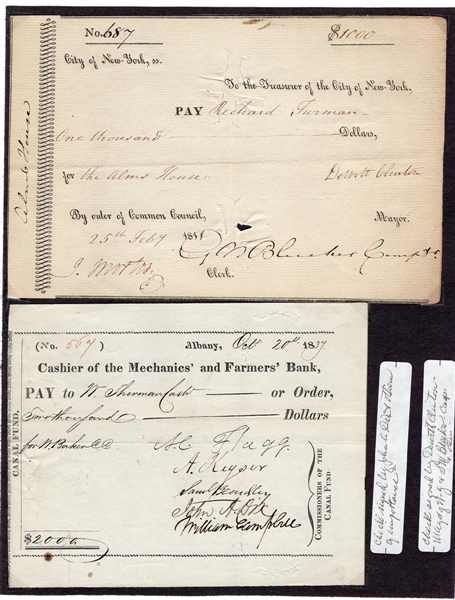 No. 687 $1000
City of New-York, ss.
To the Treasurer of the City of New-York,
PAY Richard Furman
One thousand Dollars,
for the Alms House Dewitt Clinton
By order of Common Council, Mayor.
25th Feby 1811
J. Morton Clerk.
Alms House
(No. 567) Albany, Oct 20th 1837
Cashier of the Mechanics' and Farmers' Bank,
PAY to W Sherman Cash or Order,
Two thousand Dollars
for W. Baker C C
A C Flagg
A. Keyser
Saml Beardsley
John A Dix
William Campbell
COMMISSIONERS OF THE CANAL FUND.
CANAL FUND.
$2000
check signed by John A Dix
check signed by Dewitt Clinton